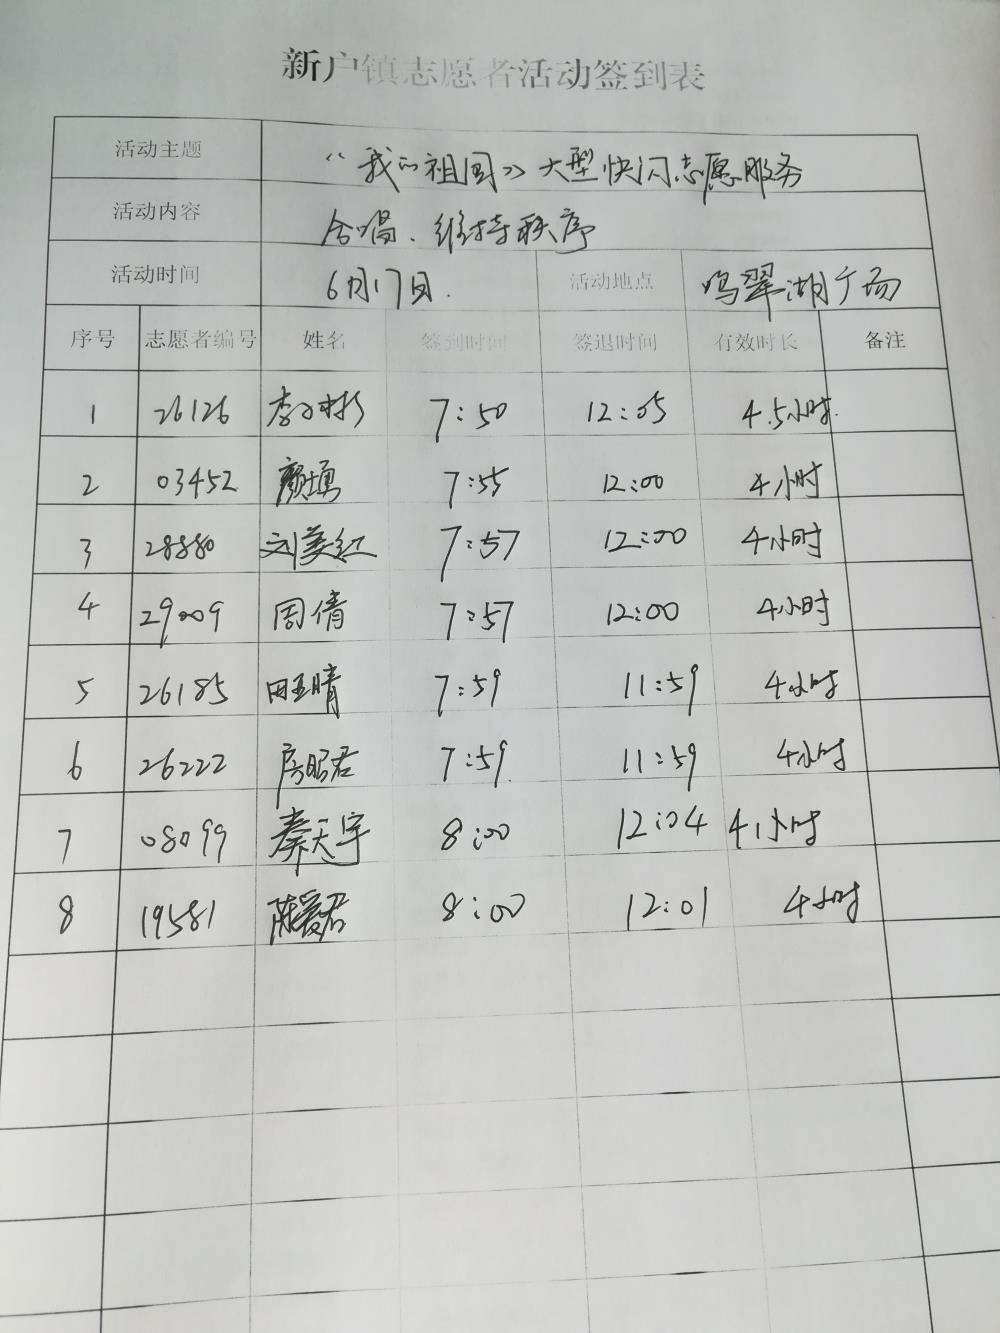 新户镇志愿者活动签到表
活动主题 “我的祖国》大型快闪志愿服务
活动内容 合唱、维持秩序
活动时间 6月17日. 活动地点 鸣翠湖广场
序号 志愿者编号 姓名 签到时间 签退时间 有效时长 备注
1 26126 7:50 12:05 4.5小时.
2 03452 颜勇 7:55 12:00 4小时
3 28880 刘美红 7:57 12:00 4小时
4 29009 周倩 7:57 12:00 4小时
5 26185 田玉晴 7:59 11:59 4小时
6 26222 房昭君 7:59. 11:59 4小时
7 08099 秦天宇 8:00 12:04 4小时
8 19581 陈爱君 8:00 12:01 4小时